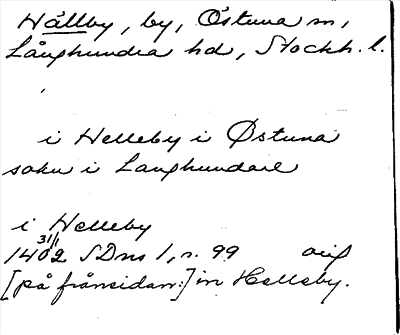 Hållby, by, Östuna sn,
Långhundra hd, Stockh. l.
i Helleby i Østuna
sokn i Langhundare
i Helleby
31/1
1402 SDns 1, n. 99 orig
[på frånsidan:] in Helleby.